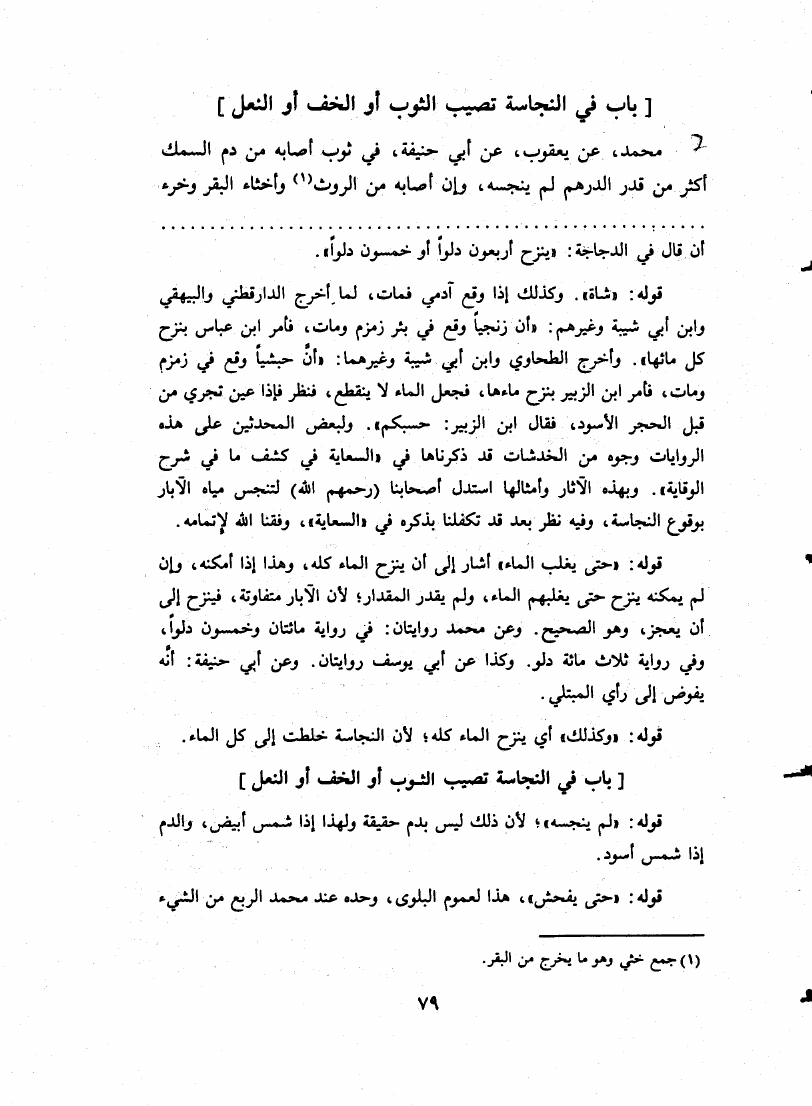 [ باب في النجاسة تصيب الثوب أو الخف أو النعل ]
محمد، عن يعقوب، عن أبي حنيفة، في ثوب أصابه من دم السمك
أكثر من قدر الدرهم لم ينجسه، وإن أصابه من الروث(١) وأخثاء البقر وخرء
أن قال في الدجاجة: «ينزح أربعون دلواً أو خمسون دلواً».
قوله: «شاة». وكذلك إذا وقع آدمي فمات، لما أخرج الدارقطني والبيهقي
وابن أبي شيبة وغيرهم: «أن زنجياً وقع في بئر زمزم ومات، فأمر ابن عباس بنزح
كل مائها». وأخرج الطحاوي وابن أبي شيبة وغيرهما: «أنَّ حبشياً وقع في زمزم
ومات، فأمر ابن الزبير بنزح ماءها، فجعل الماء لا ينقطع، فنظر فإذا عين تجري من
قبل الحجر الأسود، فقال ابن الزبير: حسبكم». ولبعض المحدثين على هذه
الروايات وجوه من الخدشات قد ذكرناها في «السعاية في كشف ما في شرح
الوقاية». وبهذه الآثار وأمثالها استدل أصحابنا (رحمهم الله) لتنجس مياه الآبار
بوقوع النجاسة، وفيه نظر بعد قد تكفلنا بذكره في «السعاية»، وفقنا الله لإتمامه.
قوله: «حتى يغلب الماء» أشار إلى أن ينزح الماء كله، وهذا إذا أمكنه، وإن
لم يمكنه نزح حتى يغلبهم الماء، ولم يقدر المقدار؛ لأن الآبار متفاوتة، فينزح إلى
أن يعجز، وهو الصحيح. وعن محمد روايتان: في رواية مائتان وخمسون دلواً،
وفي رواية ثلاث مائة دلو. وكذا عن أبي يوسف روايتان. وعن أبي حنيفة: أنَّه
يفوض إلى رأي المبتلي.
قوله: «وكذلك» أي ينزح الماء كله؛ لأن النجاسة خلطت إلى كل الماء.
[ باب في النجاسة تصيب الثوب أو الخف أو النعل ]
قوله: «لم ينجسه»؛ لأن ذلك ليس بدم حقيقة ولهذا إذا شمس أبيض، والدم
إذا شمس أسود.
قوله: «حتى يفحش»، هذا لعموم البلوى، وحده عند محمد الربع من الشيء
(١) جمع خثي وهو ما يخرج من البقر.
٧٩